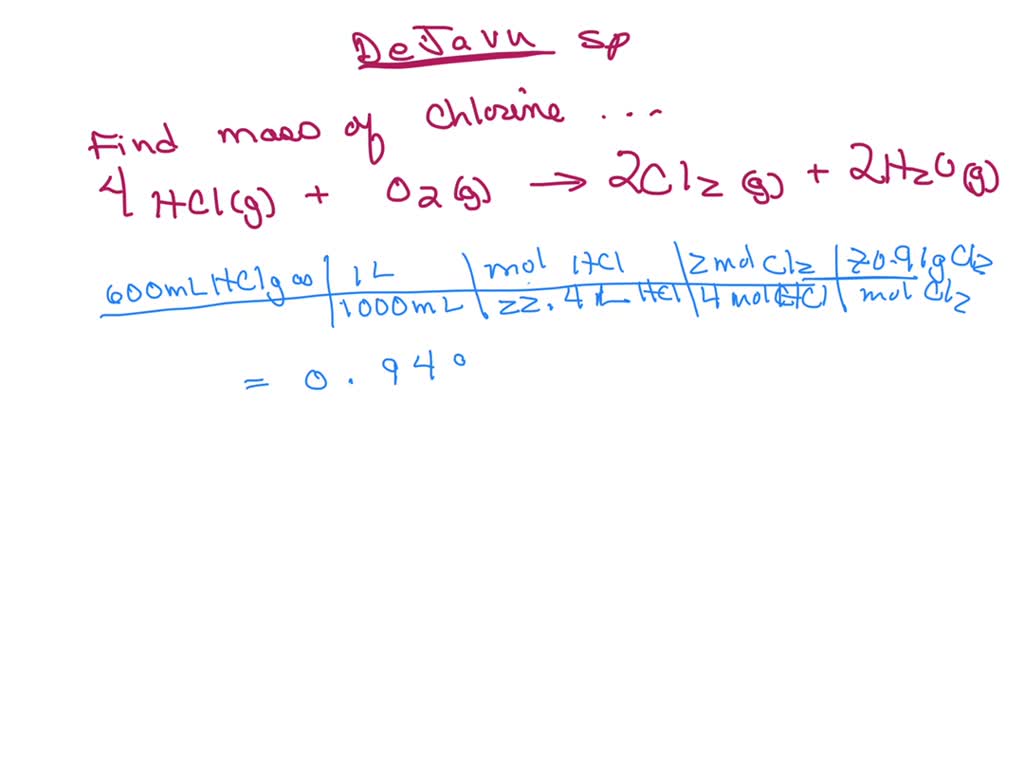 DeJavu sp
Find mass of Chlorine ...
4 HCl(g) + O2(g) → 2Cl2(g) + 2H2O(g)
600mL HCl gas | 1L | mol HCl | 2 mol Cl2 | 70.91g Cl2
1000mL | 22.4 L HCl | 4 mol HCl | mol Cl2
= 0.940